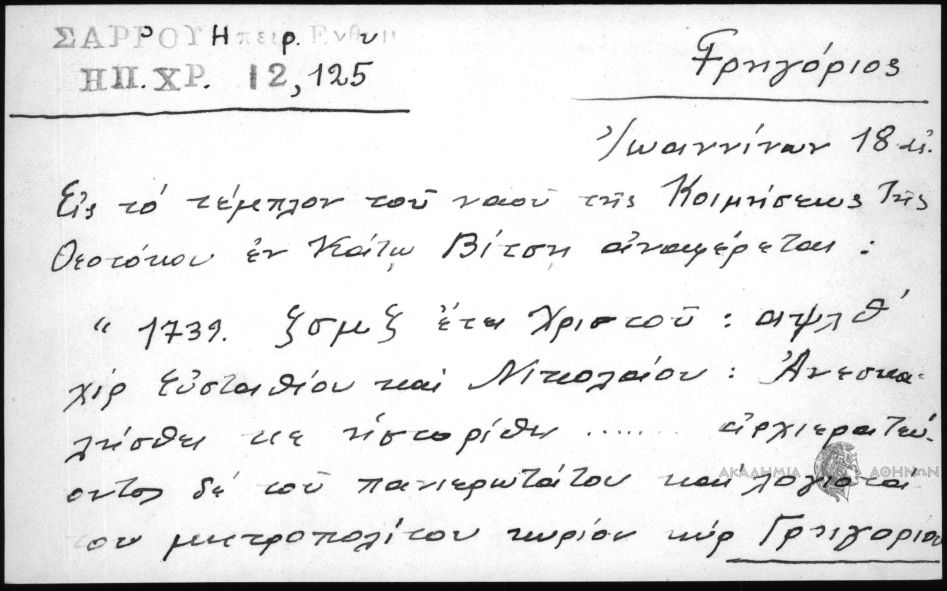 ΣΑΡΡΟΥ Ηπειρ. Ενθυ
ΗΠ. ΧΡ. 12, 125
Γρηγόριος
Ἰωαννίνων 18 αἰ.
Εἰς τό τέμπλον τοῦ ναοῦ τῆς Κοιμήσεως Τῆς
Θεοτόκου ἐν Κάτω Βίτση ἀναφέρεται :
" 1739. ζσμζ ἔτει Χριστοῦ : αψλθ'
χίρ Εὐσταθίου καί Νικολαίου : Ἀνεσκα-
λήσθει κε ἡστορίθη ...... ἀρχιερατεύ-
οντος δέ τοῦ πανιερωτάτου και λογιοτά
του μητροπολίτου κυρίου κύρ Γρηγορίου
ΑΚΑΔΗΜΙΑ ΑΘΗΝΩΝ